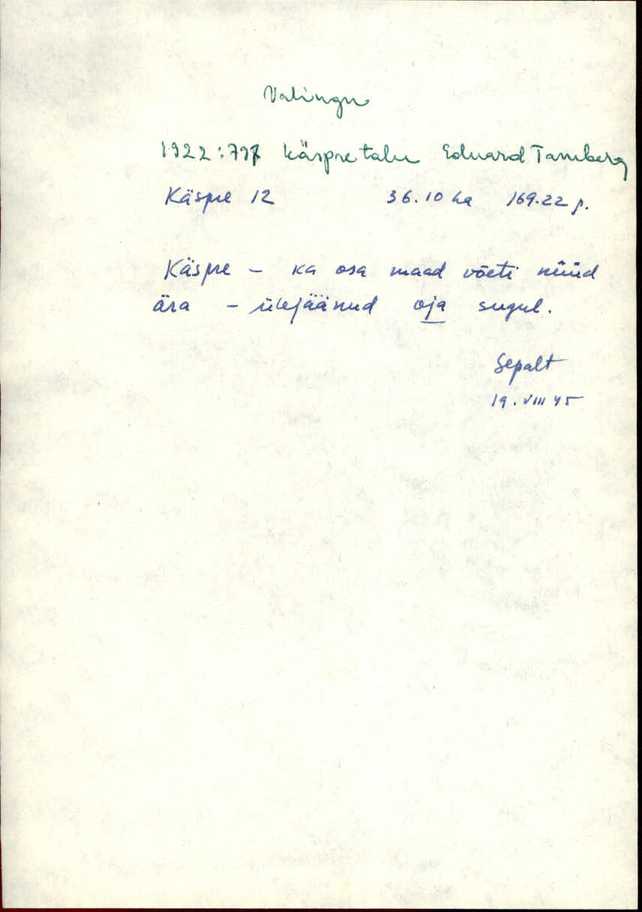 Valingu
1922: Käspre talu Eduard Tamberg
Käspre 12 36.10 ha 169.22 r.
Käspre - ka osa maad võeti nüüd
ära - ülejäänud oja sugul.
Sepalt
19. VIII 45